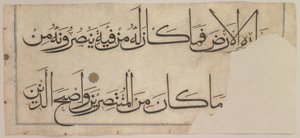 الأرض فما كان له من فئة ينصرونه من
ما كان من المنتصرين وأصبح الذين